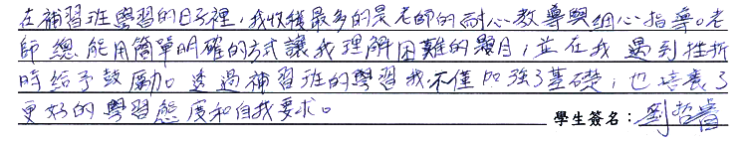 在補習班學習的日子裡，我收穫最多的是老師的耐心教導與細心指導。老
師總能用簡單明確的方式讓我理解困難的題目，並在我遇到挫折
時給予鼓勵。透過補習班的學習我不僅加強了基礎，也培養了
更好的學習態度和自我要求。
學生簽名：劉哲睿